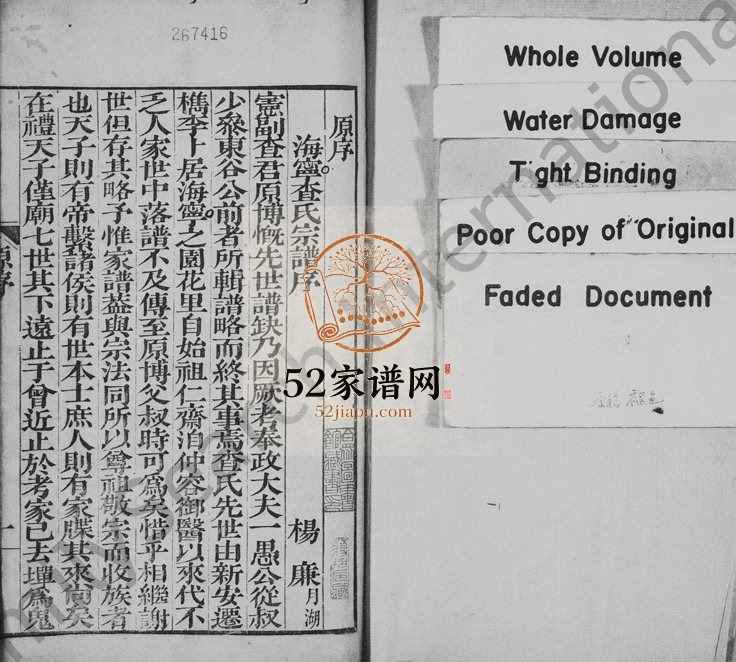 267416
原序
海寧查氏宗譜序
楊廉月湖
憲副查君原博慨先世譜缺乃因厥考奉政大夫一愚公從叔
少參東谷公前者所輯譜略而終其事焉查氏先世由新安遷
檇李卜居海寧之園花里自始祖仁齋洎仲容御醫以來代不
乏人家世中落譜不及傳至原博父叔時可為矣惜乎相繼謝
世但存其略予惟家譜葢與宗法同所以尊祖敬宗而收族者
也天子則有帝繫諸侯則有世本士庶人則有家牒其來尚矣
在禮天子僅廟七世其下遠止于曾近止於考家已去墠為鬼
原序
一
Whole Volume
Water Damage
Tight Binding
Poor Copy of Original
Faded Document
52家谱网
52jiapu.com